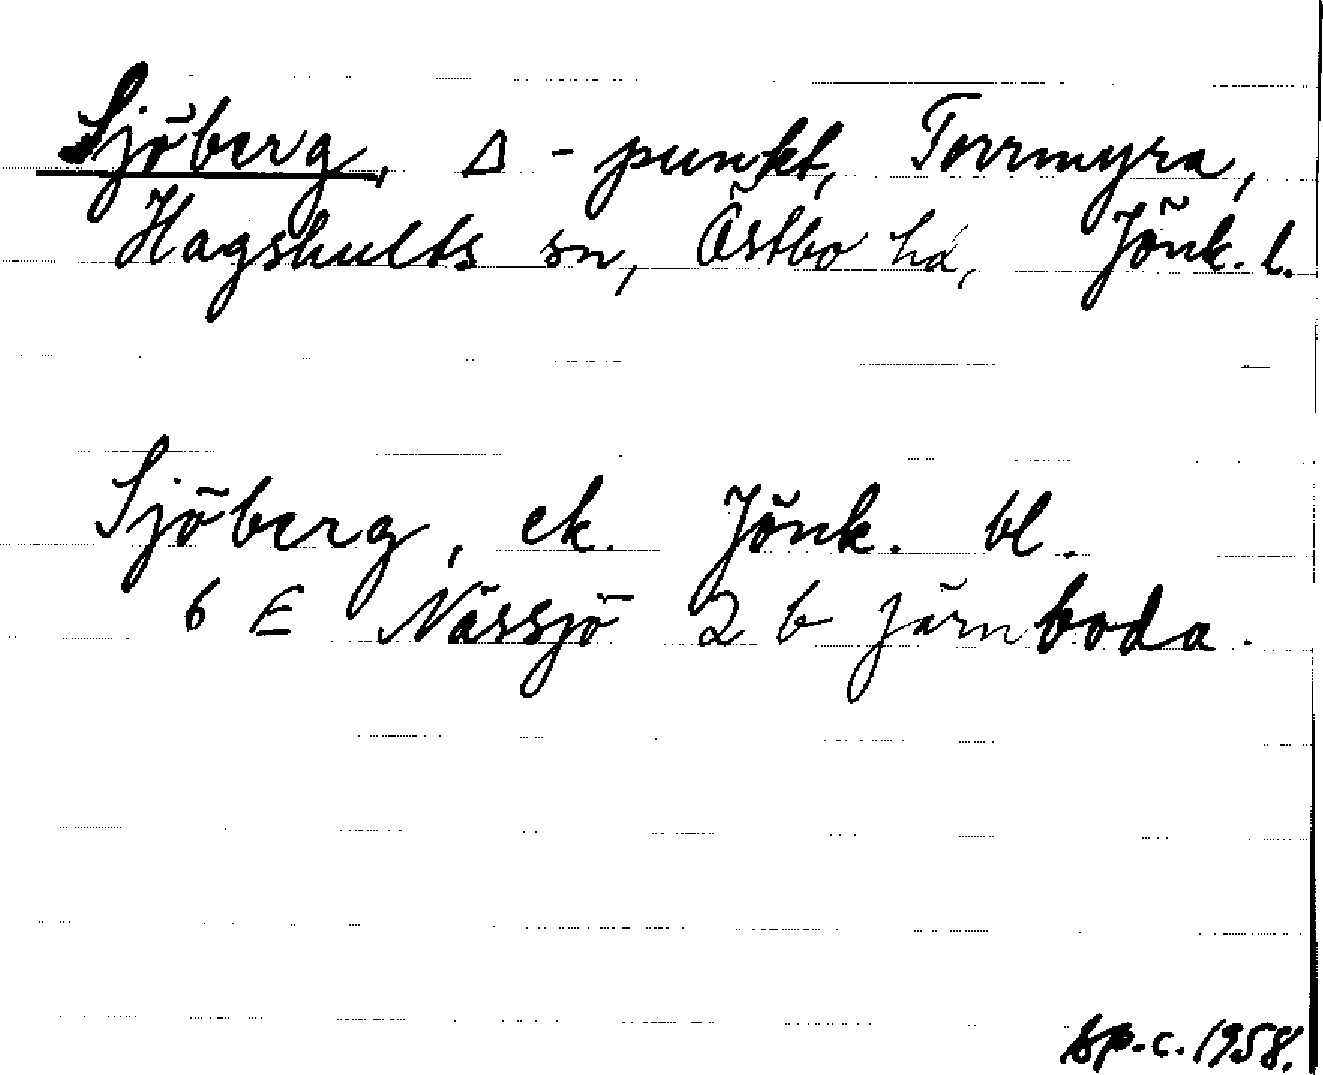 Sjöberg, Δ - punkt, Torrmyra,
Hagshults sn, Östbo hd, Jönk. l.
Sjöberg, ek. Jönk. bl.
6 E Nässjö 2 b Järnboda.
sp.c. 1958.